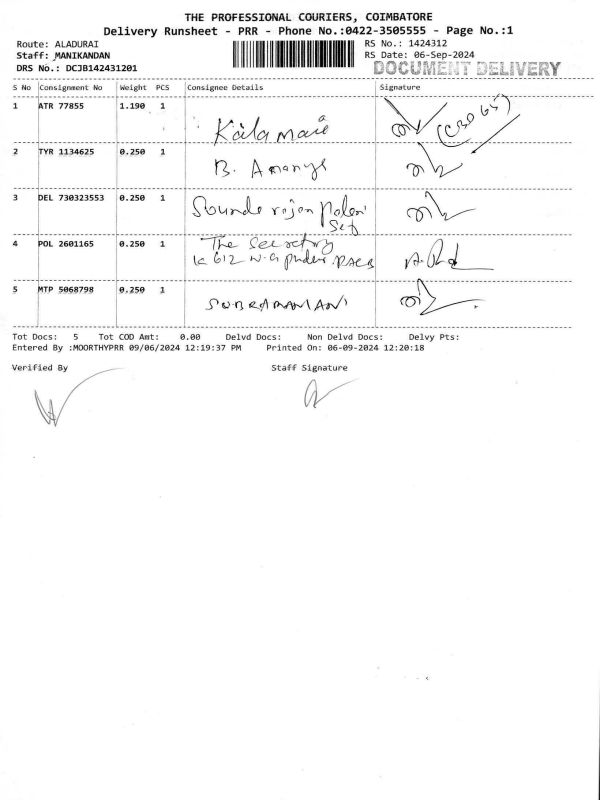 THE PROFESSIONAL COURIERS, COIMBATORE
Delivery Runsheet - PRR - Phone No.:0422-3505555 - Page No.:1
Route: ALADURAI
RS No.: 1424312
Staff: MANIKANDAN
RS Date: 06-Sep-2024
DRS No.: DCJB142431201
DOCUMENT DELIVERY
S No Consignment No Weight PCS Consignee Details Signature
1 ATR 77855 1.190 1
2 TYR 1134625 0.250 1 B. Ananya
3 DEL 730323553 0.250 1
4 POL 2601165 0.250 1 The Secretary
K 612
5 MTP 5068798 0.250 1 SUBRAMANANI
Tot Docs: 5 Tot COD Amt: 0.00 Delvd Docs: Non Delvd Docs: Delvy Pts:
Entered By :MOORTHYPRR 09/06/2024 12:19:37 PM Printed On: 06-09-2024 12:20:18
Verified By Staff Signature